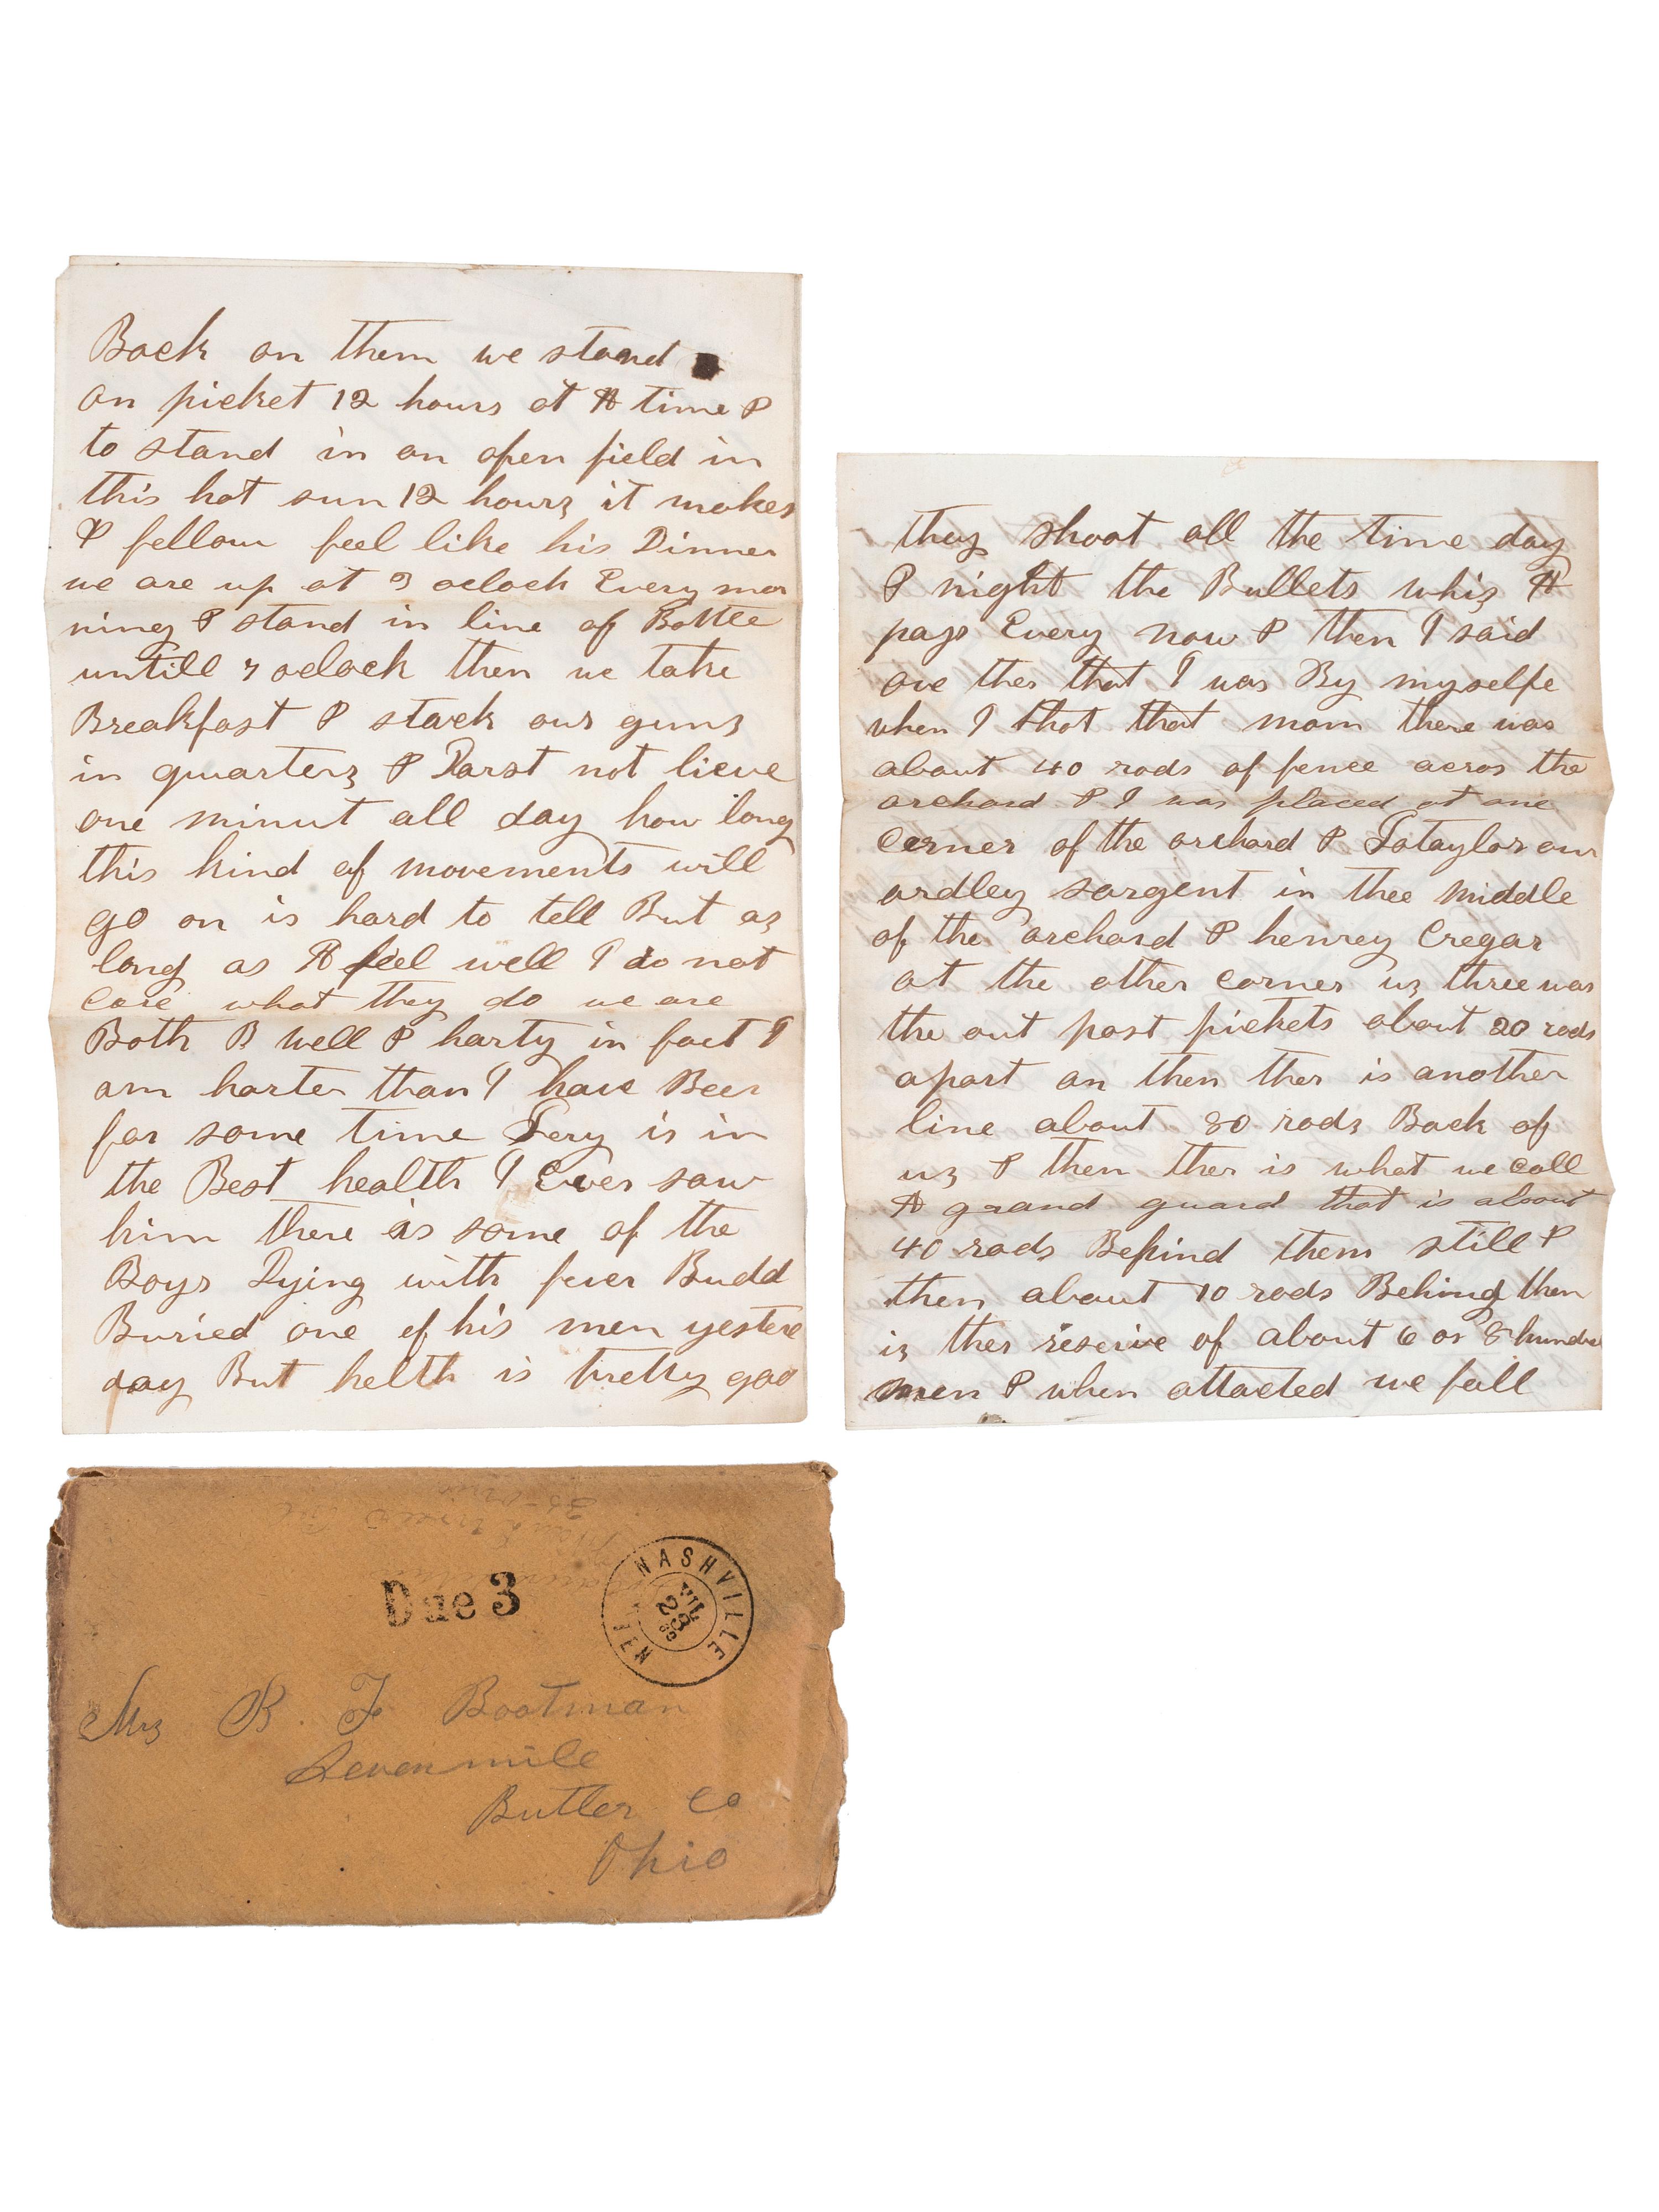 Back on them we stand
on picket 12 hours at A time &
to stand in an open field in
this hot sun 12 hours it makes
A fellow feel like his Dinner
we are up at 3 oclock Every mor
ning & stand in line of Battle
untill 7 oclock then we take
Breakfast & stack our guns
in quarters & Darst not lieve
one minut all day how long
this kind of movements will
go on is hard to tell But as
long as A feel well I do not
care what they do we are
Both B well & harty in fact I
am harter than I have Been
for some time Jery is in
the Best health I Ever saw
him there is some of the
Boys Dying with fever Budd
Buried one of his men yestere
day But helth is pretty goo
they shoot all the time day
& night the Bullets whis A
pass Every now & then I said
ove ther that I was By myselfe
when I shot that mam there was
about 40 rods of fence acros the
orchard & I was placed at one
Corner of the orchard & Jotaylor our
ardley sargent in thee middle
of the orchard & henrey Cregar
at the other corner us three was
the out post pickets about 20 rods
apart an then ther is another
line about 80 rods Back of
us & then ther is what we call
A grand guard that is about
40 rods Behind them still &
then about 10 rods Behing then
is ther reserve of about 6 or 8 hundre
men & when attacted we fall
Due 3
NASHVILLE
TEN
JUL
29
Mrs B. F Bootman
Sevenmile
Butler Co
Ohio